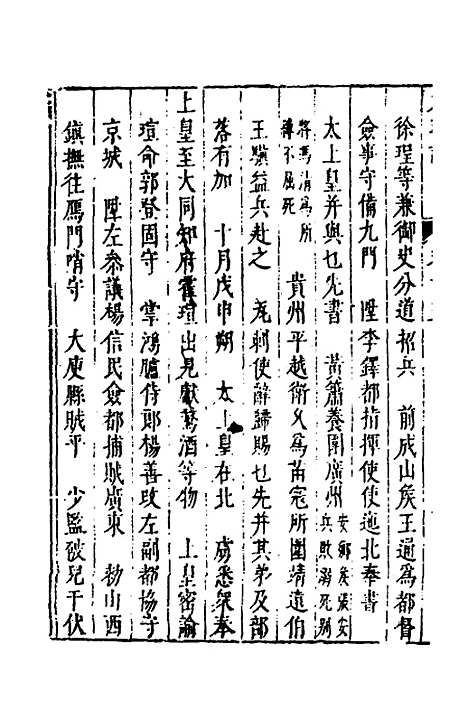 徐珵等兼御史分道招兵　前成山矦王通為都督
僉事守備九門　陞李鐸都指揮使使迤北奉書
太上皇并與也先書　黃蕭養圍廣州安鄉矦張安兵敗溺死别
將馬清為所縛不屈死　貴州平越衛久為苗寇所圍靖遠伯
王驥益兵赴之　虎刺使辭歸賜也先并其弟及部
落有加　十月戊申朔　太上皇在北　虜悉衆奉
上皇至大同知府霍瑄出見獻鵞酒等物　上皇密諭
瑄命郭登固守　掌鴻臚侍郎楊善攻左副都協守
京城　陞左叅議楊信民僉都捕賊廣東　勑山西
鎮撫往鴈門哨守　大庾縣賊平　少監跛兒干伏